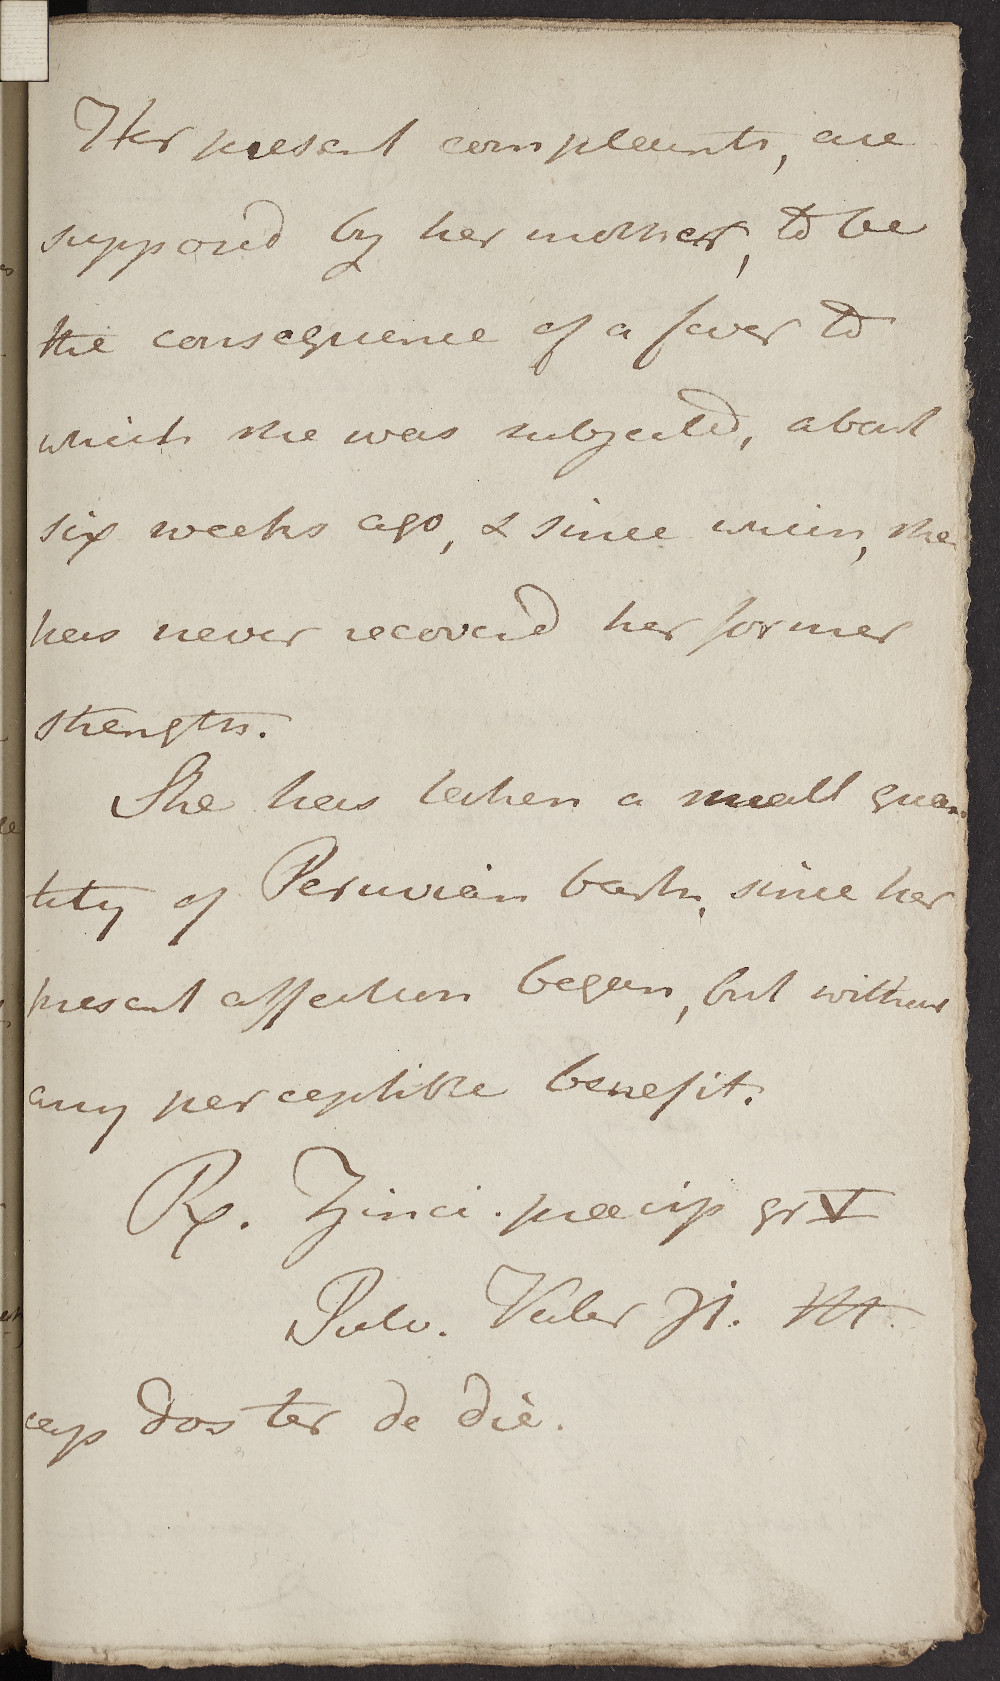 Her present complaints, are
supposed by her mother, to be
the consequence of a fever to
which she was subjected, about
six weeks ago, & since when, she
has never recoverd her former
strength.
She has taken a small quan
tity of Peruvian bark, since her
present affection began, but without
any perceptible benefit.
Rx. Zinci. precip gr V
Pulv. Valer ʒi. M.
cap dos ter de die.